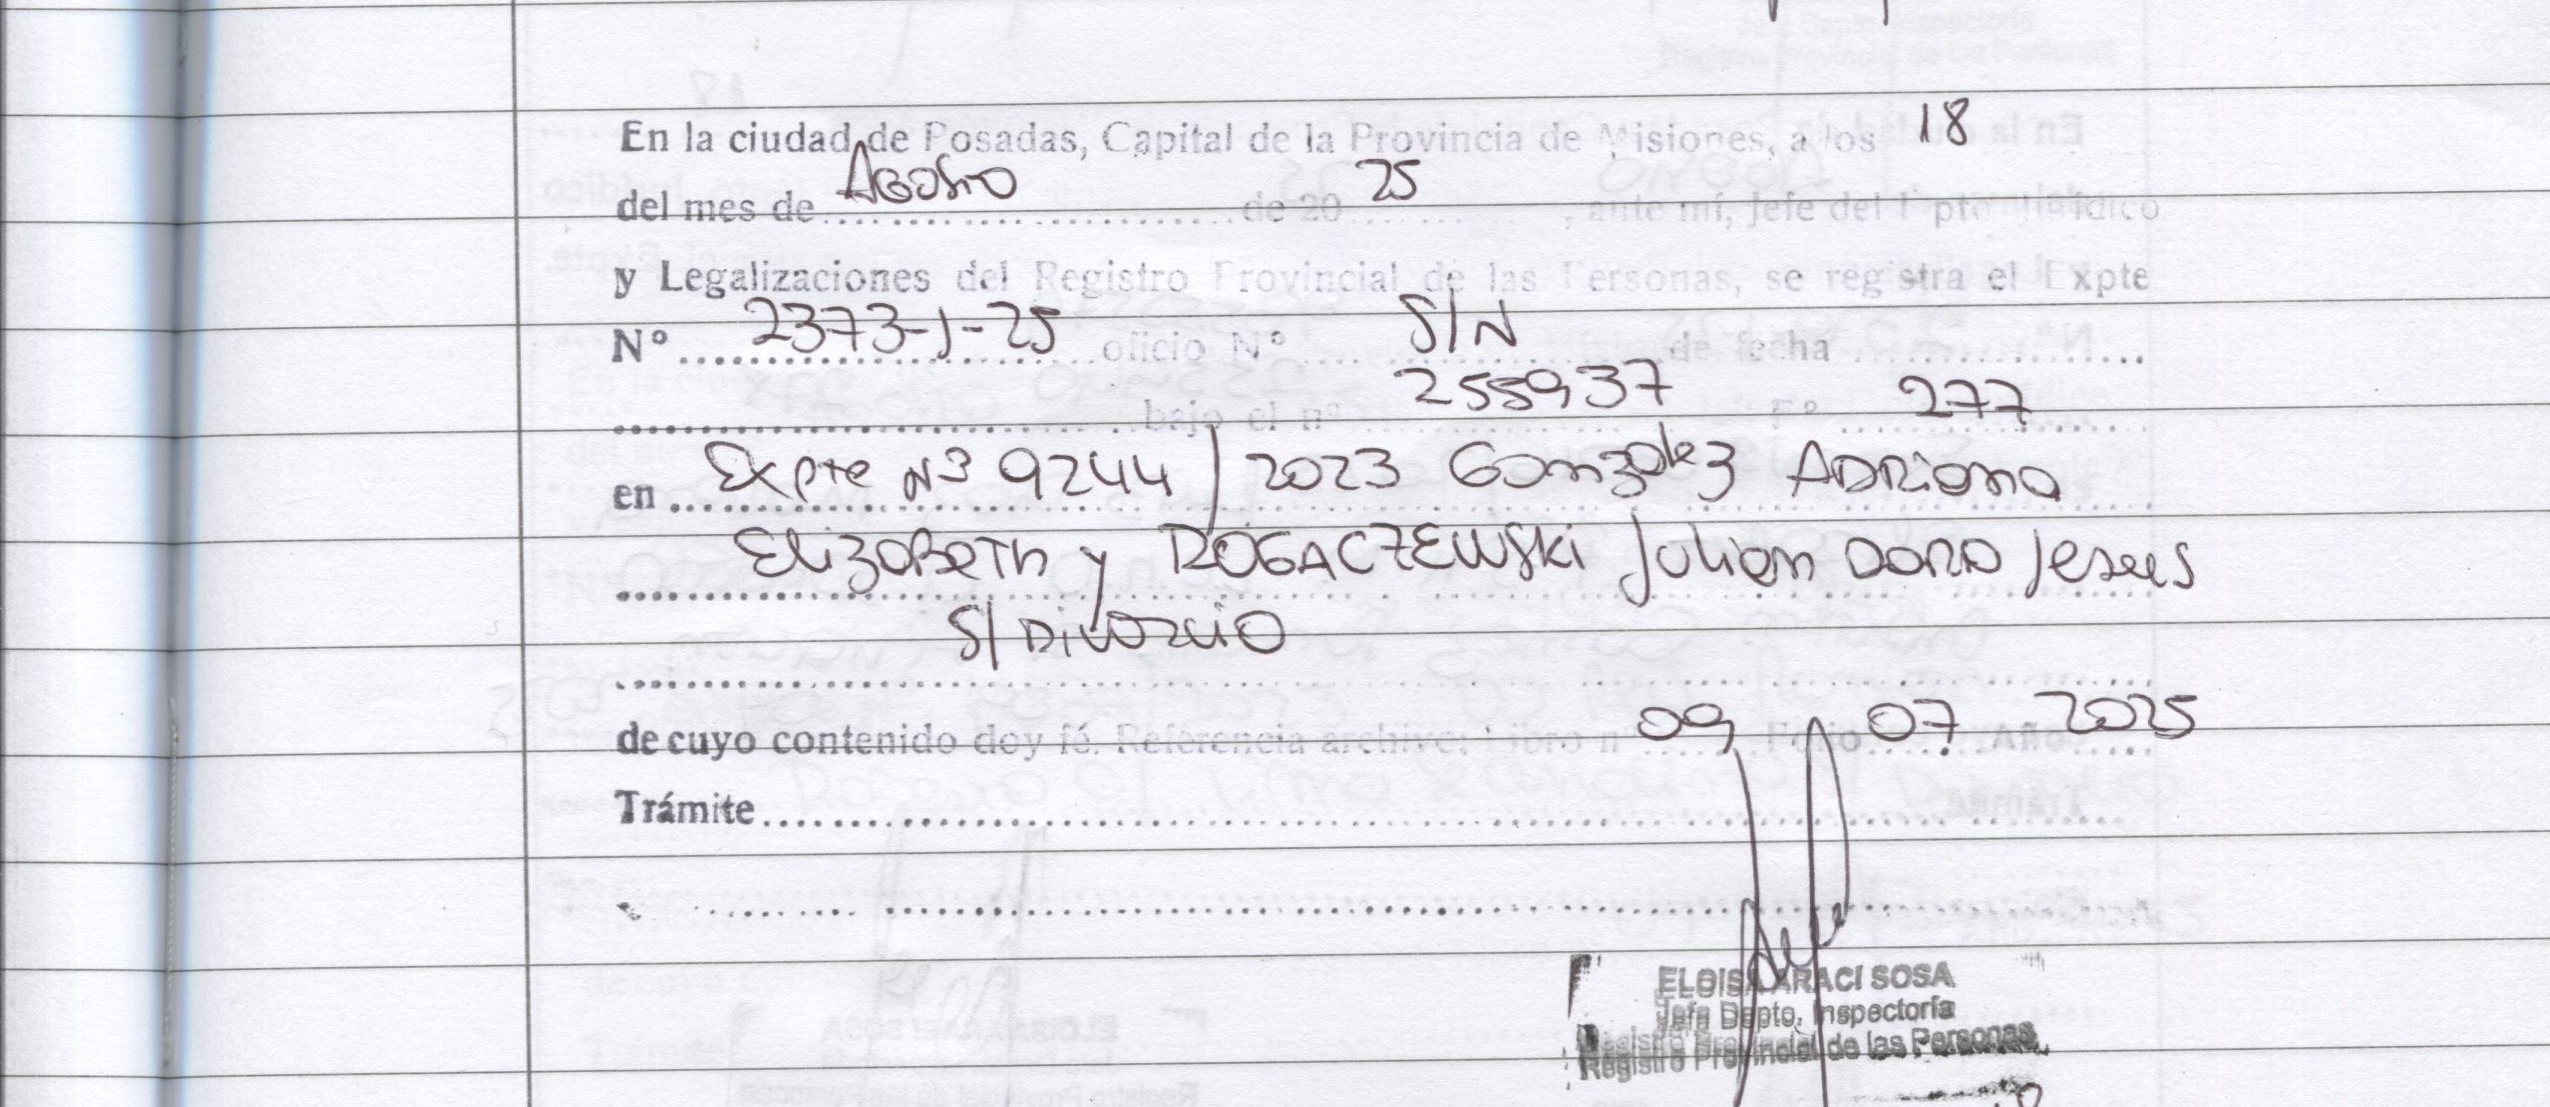 En la ciudad de Posadas, Capital de la Provincia de Misiones, a los 18
del mes de Agosto de 20 25, ante mí, Jefe del Dpto Jurídico
y Legalizaciones del Registro Provincial de las Personas, se registra el Expte
Nº 2373-J-25 oficio Nº S/N de fecha
bajo el nº 255937 Fº 277
en Expte Nº 9244/2023 Gonzalez Adriana
Elizabeth y ROGACZEWSKI Julian Jesus
S/ Divorcio
de cuyo contenido doy fé. Referencia archivo: Libro nº 09 Folio 07 Año 2025
Trámite
ELOISA ARACI SOSA
Jefa Depto. Inspectoría
Registro Provincial de las Personas